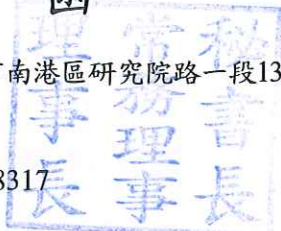 南港區研究院路一段13
8317
秘書長
常務理事
理事長